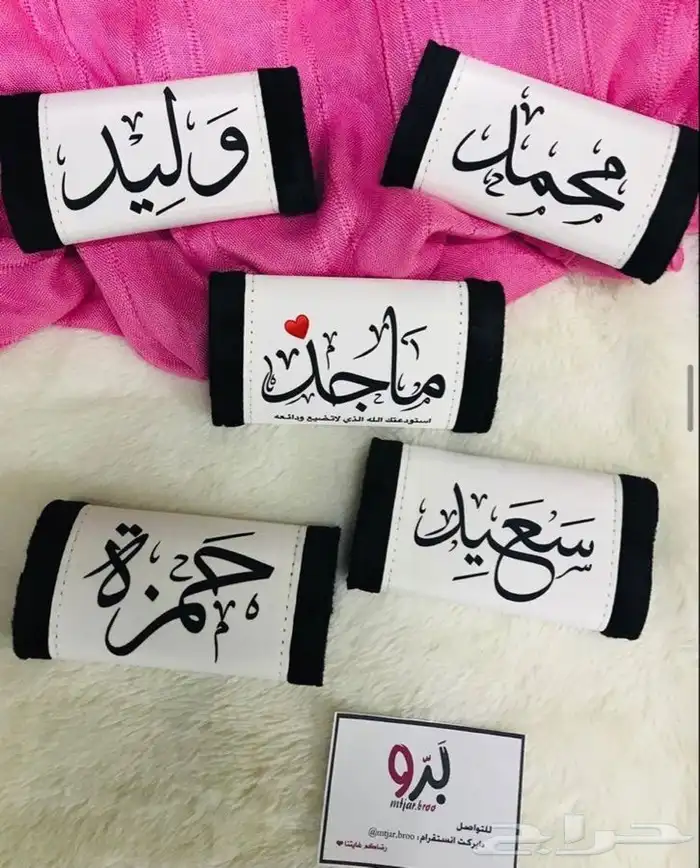 وَلِيد
محمد
مَاجد
استودعتك الله الذي لاتضيع ودائعه
سَعَيِد
حَمزة
بَدّو
mtjar.broo
للتواصل
دايركت انستقرام: mtjar.broo@
رضاكم غايتنا
حراج